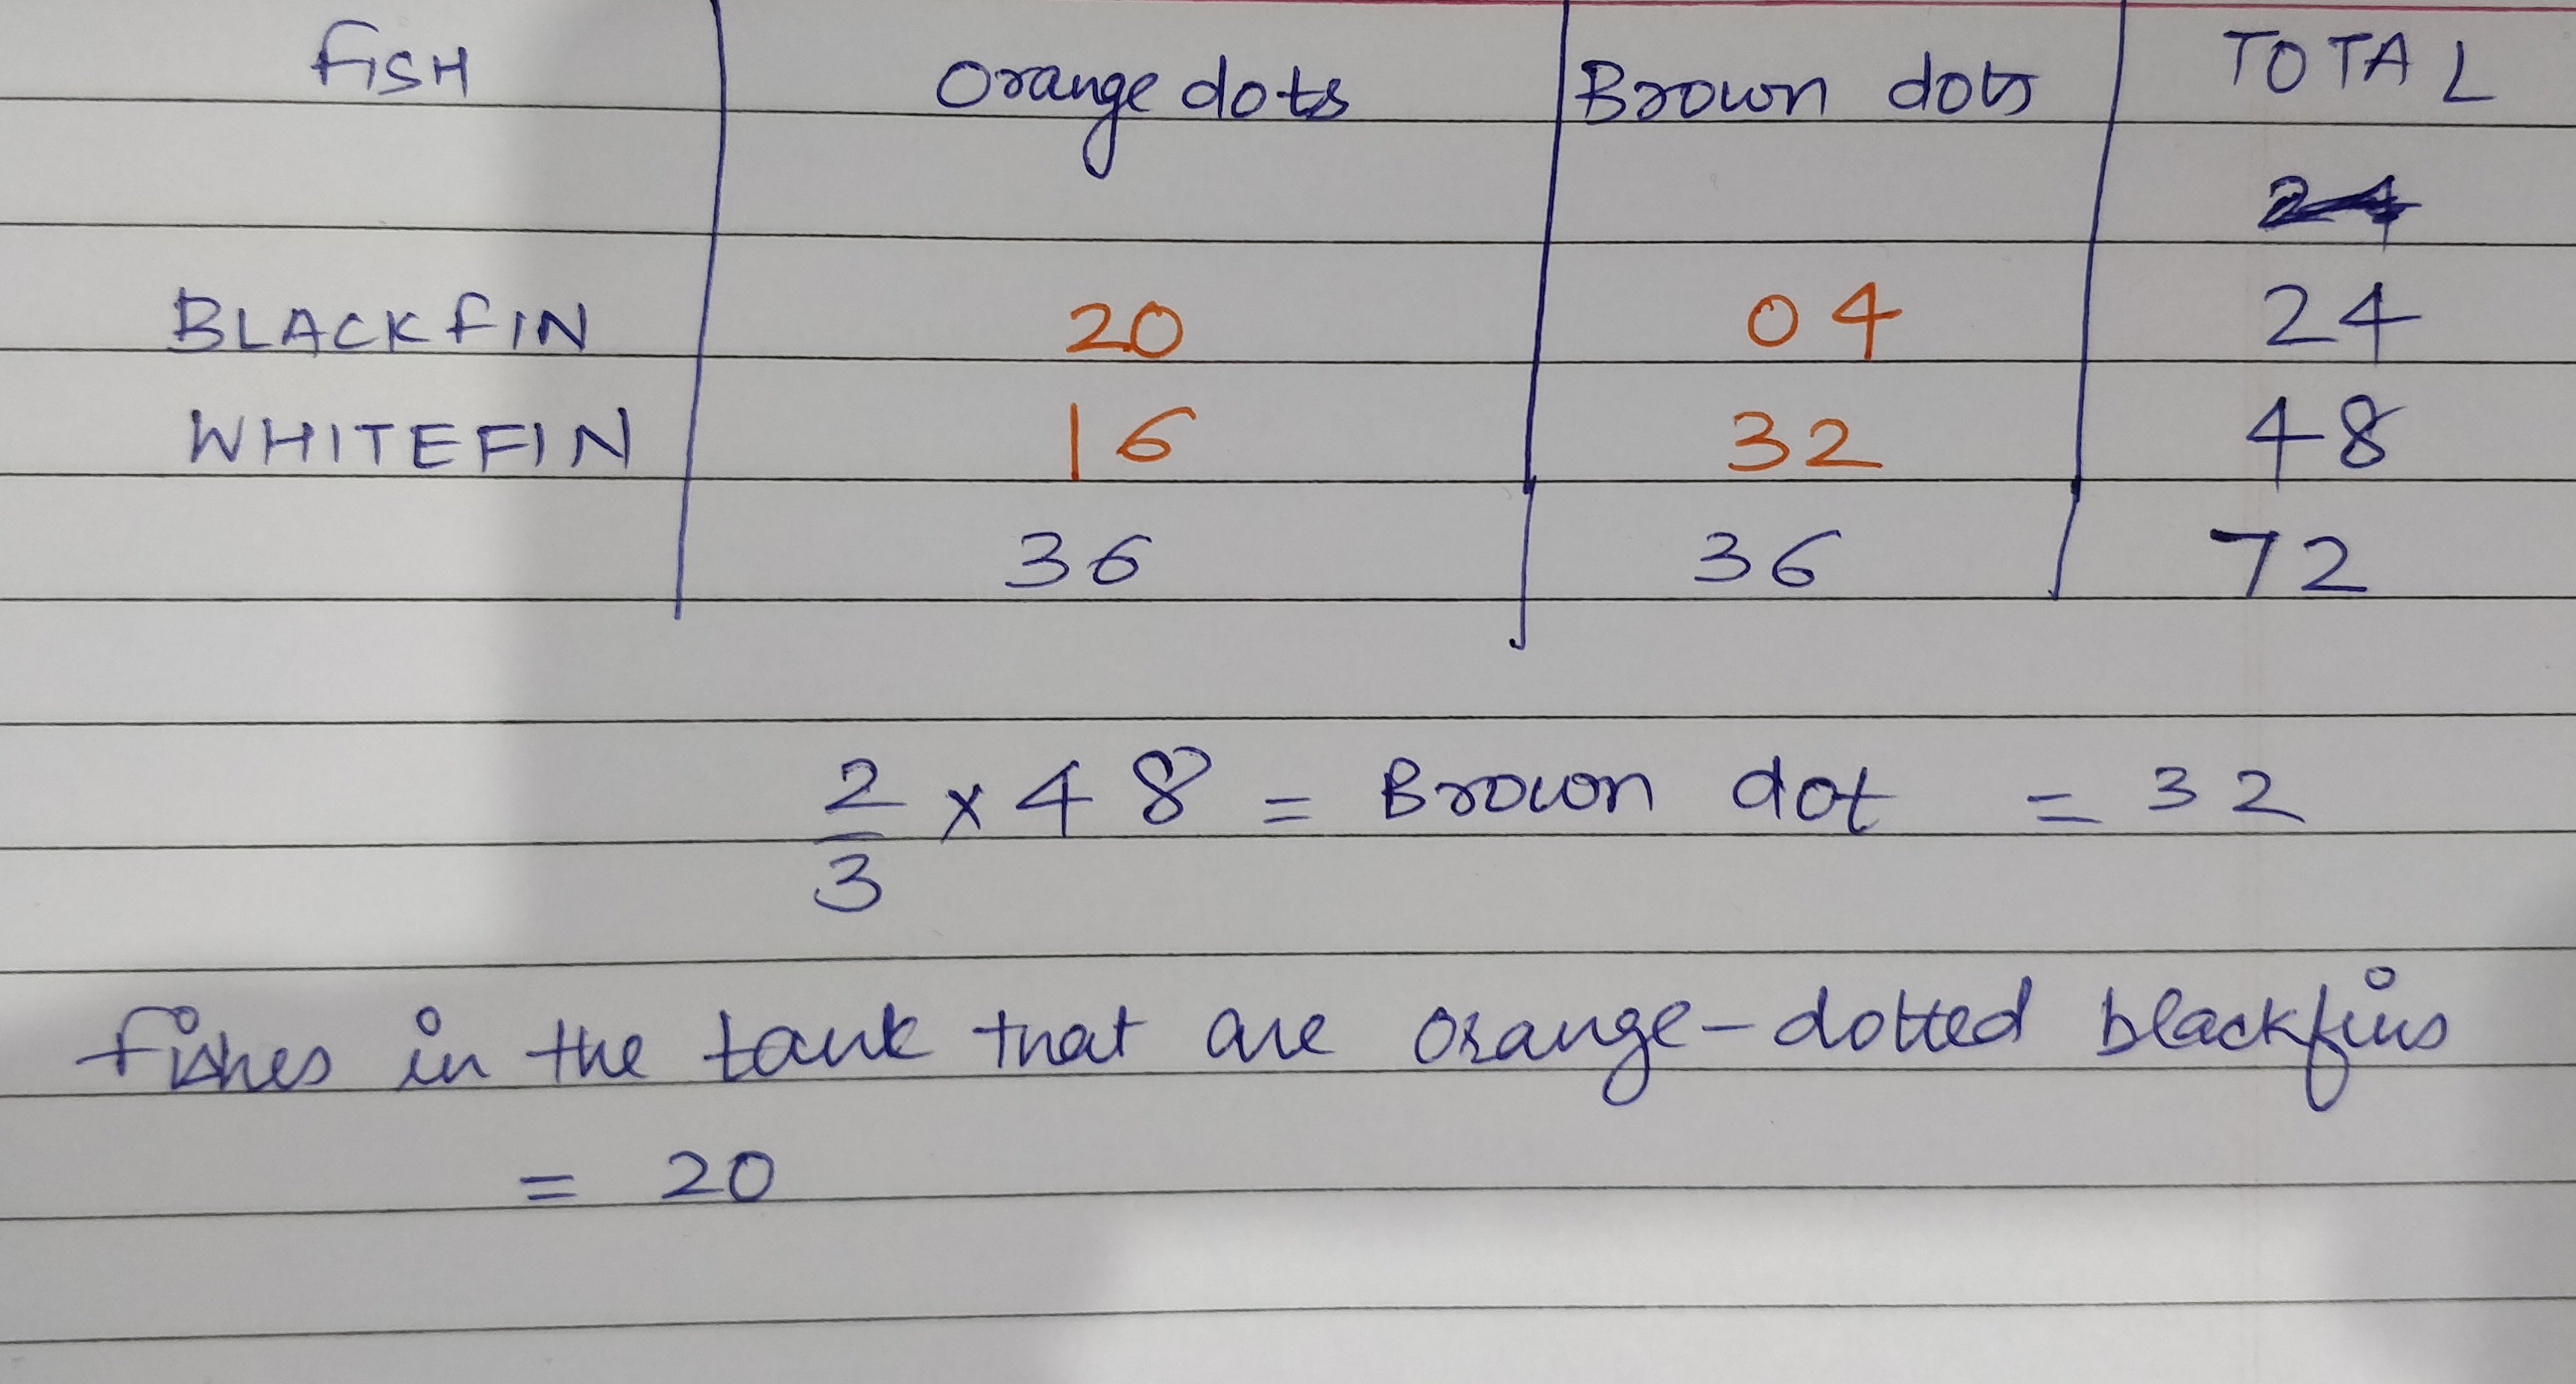 FISH Orange dots Brown dots TOTAL
24
BLACKFIN 20 04 24
WHITEFIN 16 32 48
36 36 72
2/3 x 48 = Brown dot = 32
Fishes in the tank that are orange-dotted blackfins
= 20